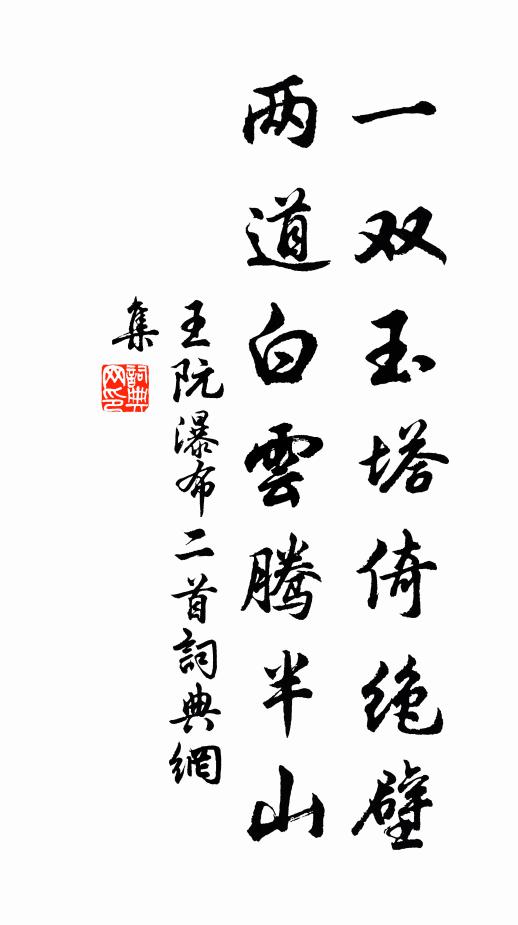 一双玉塔倚绝壁
两道白雲腾半山
王阮瀑布二首詞典網
集
詞典网印